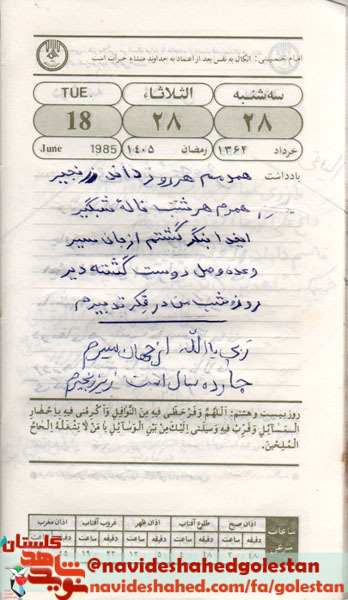 امام خمینی: اتکال به نفس بعد از اعتماد به خداوند منشاء خیرات است
سه شنبه الثلاثاء TUE.
۲۸ ۲۸ 18
خرداد ۱۳۶۴ رمضان ۱۴۰۵ 1985 June
یادداشت
همدمم هر روز داند زنجیر
همرم هر شب ناله شبگیر
ای خدا بنگر گشتم از جان سیر
وعده وصل دوست گشته دیر
روز و شب من در فکر تدبیرم
ربی یا الله از جهان سیرم
چارده سال است زیر زنجیرم
روز بیست و هشتم: اَللّهُمَّ وَفِّرْ حَظّی فیهِ مِنَ النَّوافِلِ وَاَکْرِمْنی فیهِ بِاِحْضارِ
الْمَسآئِلِ وَقَرِّبْ فیهِ وَسیلَتی اِلَیْکَ مِنْ بَیْنِ الْوَسآئِلِ یا مَنْ لا یَشْغَلُهُ اِلْحاحُ
الْمُلِحّینَ.
ساعات شرعی
اذان صبح طلوع آفتاب اذان ظهر غروب آفتاب اذان مغرب
دقیقه ساعت دقیقه ساعت دقیقه ساعت دقیقه ساعت دقیقه ساعت
نوید شاهد گلستان
@navideshahedgolestan
navideshahed.com/fa/golestan